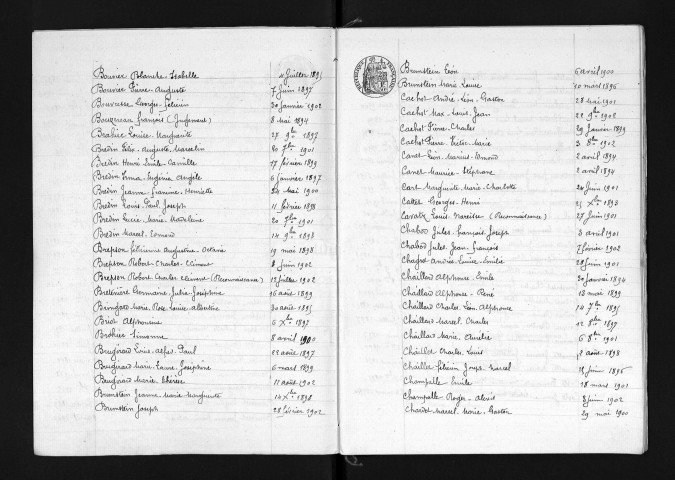 Bouvier Blanche Isabelle 4 Juillet 1895
Bouvier Pierre Auguste 7 Juin 1897
Bouvresse Georges 30 Janvier 1902
Bouzereau François (Jugement) 8 mai 1894
Brahier Louise Marguerite 27 9bre 1897
Bredin Félix Auguste Marcelin 20 7bre 1901
Bredin Henri Emile Camille 17 février 1899
Bredin Irma Eugénie Angèle 6 janvier 1897
Bredin Jeanne Francine Henriette 24 mai 1900
Bredin Louis Paul Joseph 11 février 1898
Bredin Lucie Marie Madeleine 20 7bre 1901
Bredin Marcel Edmond 14 9bre 1898
Brepson Augustine Octavie 19 mai 1898
Brepson Robert Charles Clément Juin 1902
Brepson Robert Charles Clément (Reconnaissance) 12 Juillet 1902
Germaine Julia Joséphine 16 août 1899
Marie Rose Louise Albertine 30 août 1895
Briot Alphonsine 6 Xbre 1897
Simonne 8 avril 1900
Brugnard Louis Paul 22 août 1897
Brugnard Marie Laure Joséphine 6 mars 1899
Brugnard Marie Thérèse 11 août 1902
Brunstein Jeanne Marie Marguerite 14 Xbre 1898
Brunstein Joseph 28 février 1902
RÉPUBLIQUE FRANÇAISE
Brunstein Léon 6 avril 1900
Brunstein Marie Louise 10 mars 1896
Cachot André Léon Gaston 28 mai 1901
Cachot Max Louis Jean 22 9bre 1902
Cachot Pierre Charles 29 Janvier 1899
Cachot Pierre Marie 3 8bre 1902
Canet Léon Marius Edmond 2 avril 1894
Canet Maurice Stéphane 2 avril 1894
Cart Marguerite Marie Charlotte 24 Juin 1901
Georges Henri 25 Xbre 1893
Louis Narcisse (Reconnaissance) 27 Juin 1901
Chabod Jules François Joseph 3 avril 1901
Chabod Jules Jean François 7 février 1902
Louise Emilie 28 Juin 1901
Chaillard Alphonse Emile 30 Janvier 1894
Chaillard Alphonse René 13 mai 1899
Chaillard Charles Léon Alphonse 14 7bre 1895
Chaillard Marcel Charles 12 8bre 1897
Chaillard Marie Aurélie 6 8bre 1901
Chaillet Charles Louis 2 août 1898
Chaillet Marcel 28 Juin 1896
Champalle Emile 18 mars 1901
Champalle Roger Alexis 8 Juin 1902
Marcel Marie Gaston 29 mai 1900